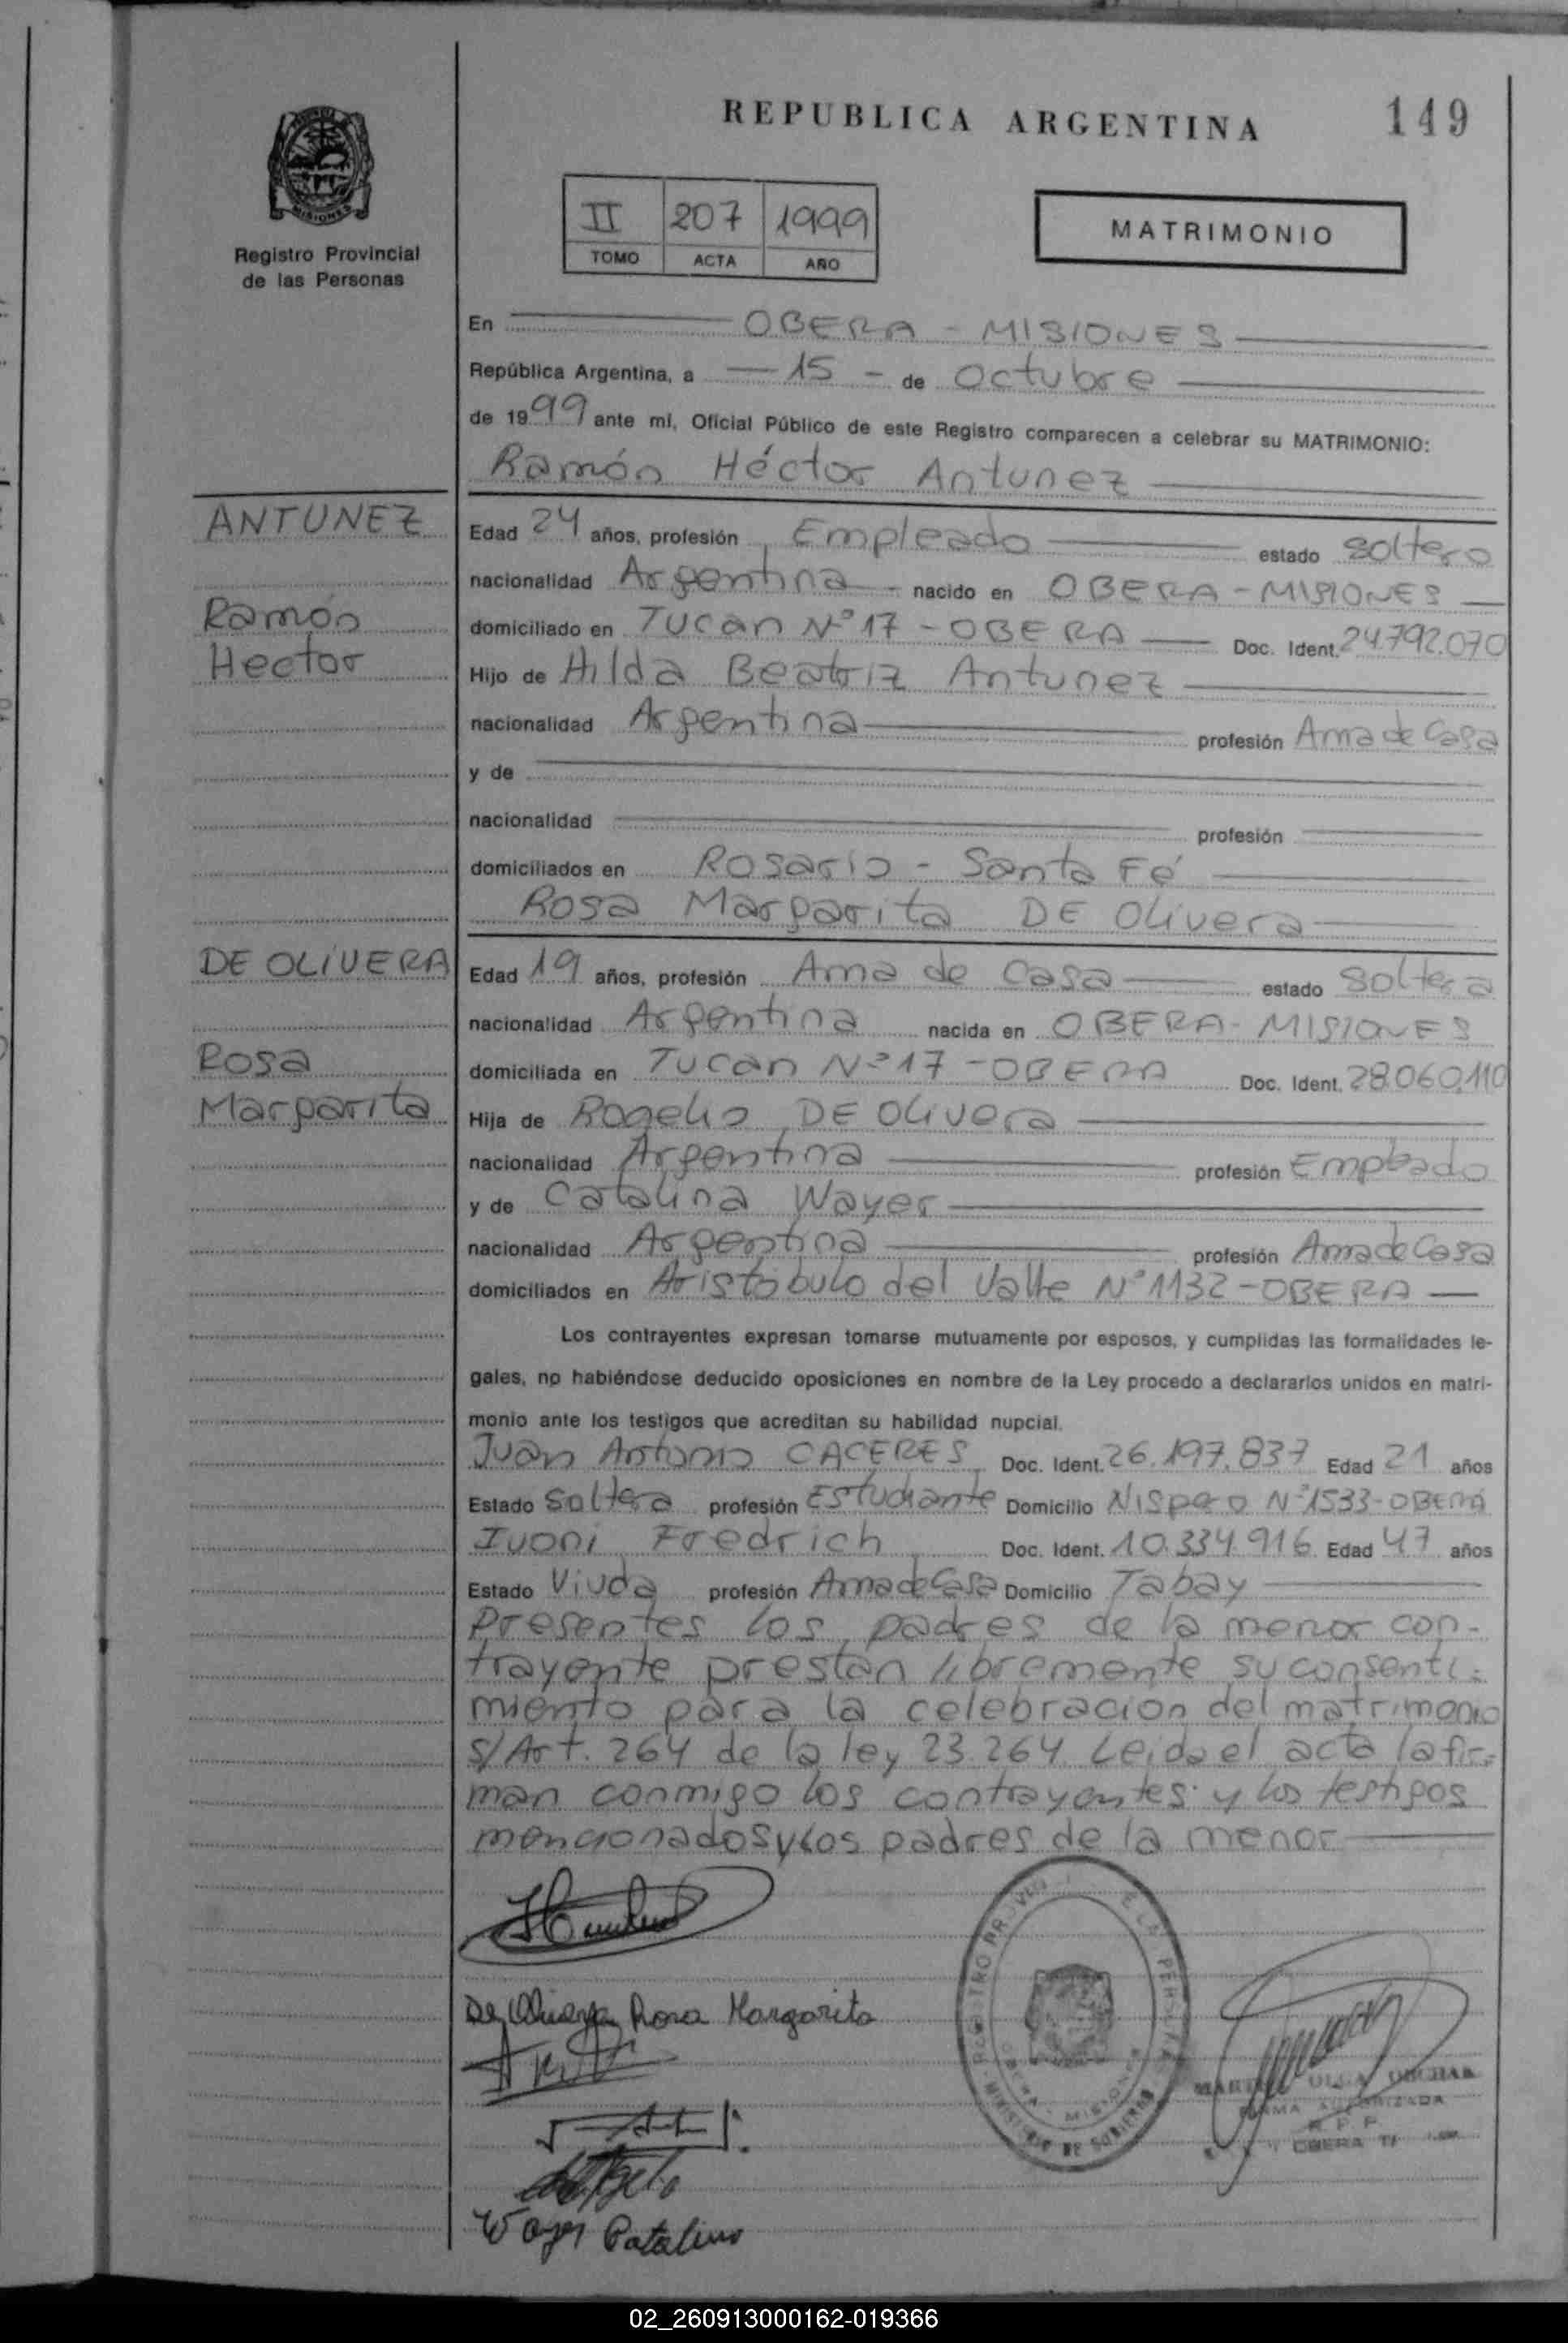 REPUBLICA ARGENTINA
149
MISIONES
Registro Provincial
de las Personas
II 207 1999
TOMO ACTA AÑO
MATRIMONIO
En OBERA - MISIONES
República Argentina, a 15 - de Octubre
de 1999 ante mí, Oficial Público de este Registro comparecen a celebrar su MATRIMONIO:
Ramón Héctor Antunez
ANTUNEZ
Edad 24 años, profesión Empleado estado soltero
nacionalidad Argentina nacido en OBERA - MISIONES
Ramón
domiciliado en Tucan Nº 17 - OBERA Doc. Ident. 24.792.070
Hector
Hijo de Hilda Beatriz Antunez
nacionalidad Argentina profesión Ama de Casa
y de
nacionalidad profesión
domiciliados en Rosario - Santa Fé
Rosa Margarita DE Olivera
DE OLIVERA
Edad 19 años, profesión Ama de Casa estado soltera
nacionalidad Argentina nacida en OBERA - MISIONES
Rosa
domiciliada en Tucan Nº 17 - OBERA Doc. Ident. 28.060.110
Margarita
Hija de Rogelio DE Olivera
nacionalidad Argentina profesión Empleado
y de Catalina Wayer
nacionalidad Argentina profesión Ama de Casa
domiciliados en Aristóbulo del Valle Nº 1132 - OBERA
Los contrayentes expresan tomarse mutuamente por esposos, y cumplidas las formalidades le-
gales, no habiéndose deducido oposiciones en nombre de la Ley procedo a declararlos unidos en matri-
monio ante los testigos que acreditan su habilidad nupcial.
Juan Antonio CACERES Doc. Ident. 26.197.837 Edad 21 años
Estado Soltera profesión Estudiante Domicilio Nispero Nº 1533 - OBERA
Ivoni Fredrich Doc. Ident. 10.334.916 Edad 47 años
Estado Viuda profesión Ama de Casa Domicilio Tabay
Presentes los padres de la menor con-
trayente prestan libremente su consenti-
miento para la celebracion del matrimonio
s/Art. 264 de la ley 23.264. Leida el acta la fir-
man conmigo los contrayentes y los testigos
mencionados y los padres de la menor
De Olivera Rosa Margarita
MINISTERIO DE GOBIERNO
OBERA - MISIONES
OLGA
FIRMA AUTORIZADA
R. P. P.
OBERA
Wayer Catalina
02_260913000162-019366